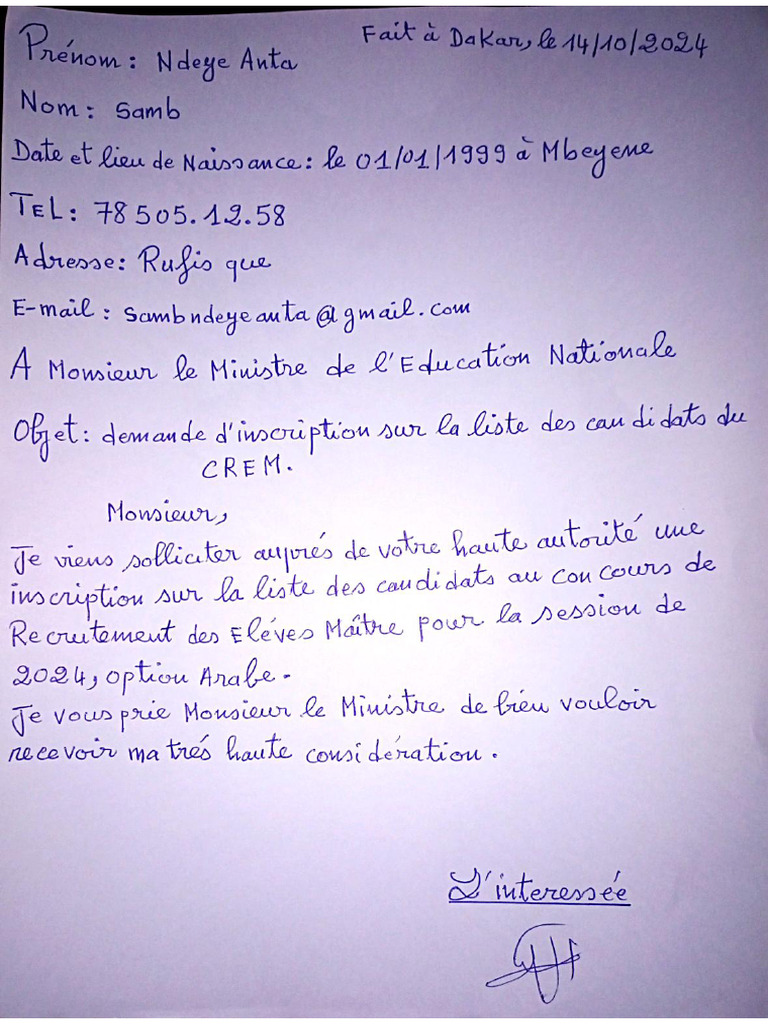 Fait à Dakar, le 14/10/2024
Prénom : Ndeye Anta
Nom : Samb
Date et lieu de Naissance : le 01/01/1999 à Mbeyene
TEL : 78 505.12.58
Adresse : Rufis que
E-mail : sambndeyeanta@gmail.com
A Monsieur le Ministre de l'Education Nationale
Objet : demande d'inscription sur la liste des candidats du
CREM.
Monsieur,
Je viens solliciter auprés de votre haute autorité une
inscription sur la liste des candidats au concours de
Recrutement des Eléves Maître pour la session de
2024, option Arabe.
Je vous prie Monsieur le Ministre de bien vouloir
recevoir ma trés haute considération.
L'interessée